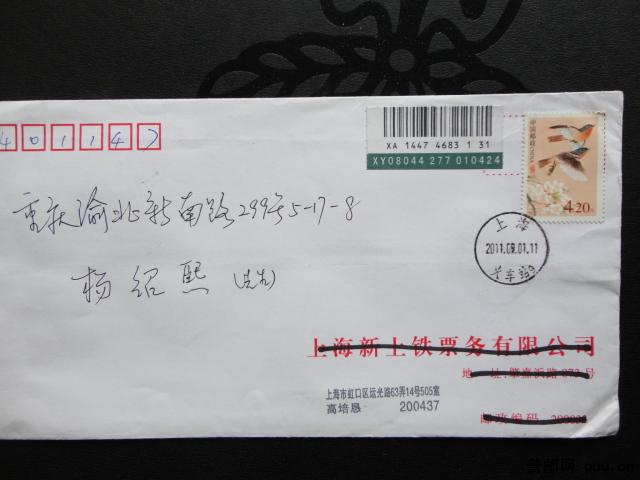 XA 1447 4683 1 31
XY08044 277 010424
401147
中国邮政 CHINA
4.20元
重庆渝北新南路299号5-17-8
上海
2011.09.01.11
杨绍熙(先生)
上海新上铁票务有限公司
地 址:肇嘉浜路 号
上海市虹口区运光路63弄14号505室
高培恳 200437
邮政编码